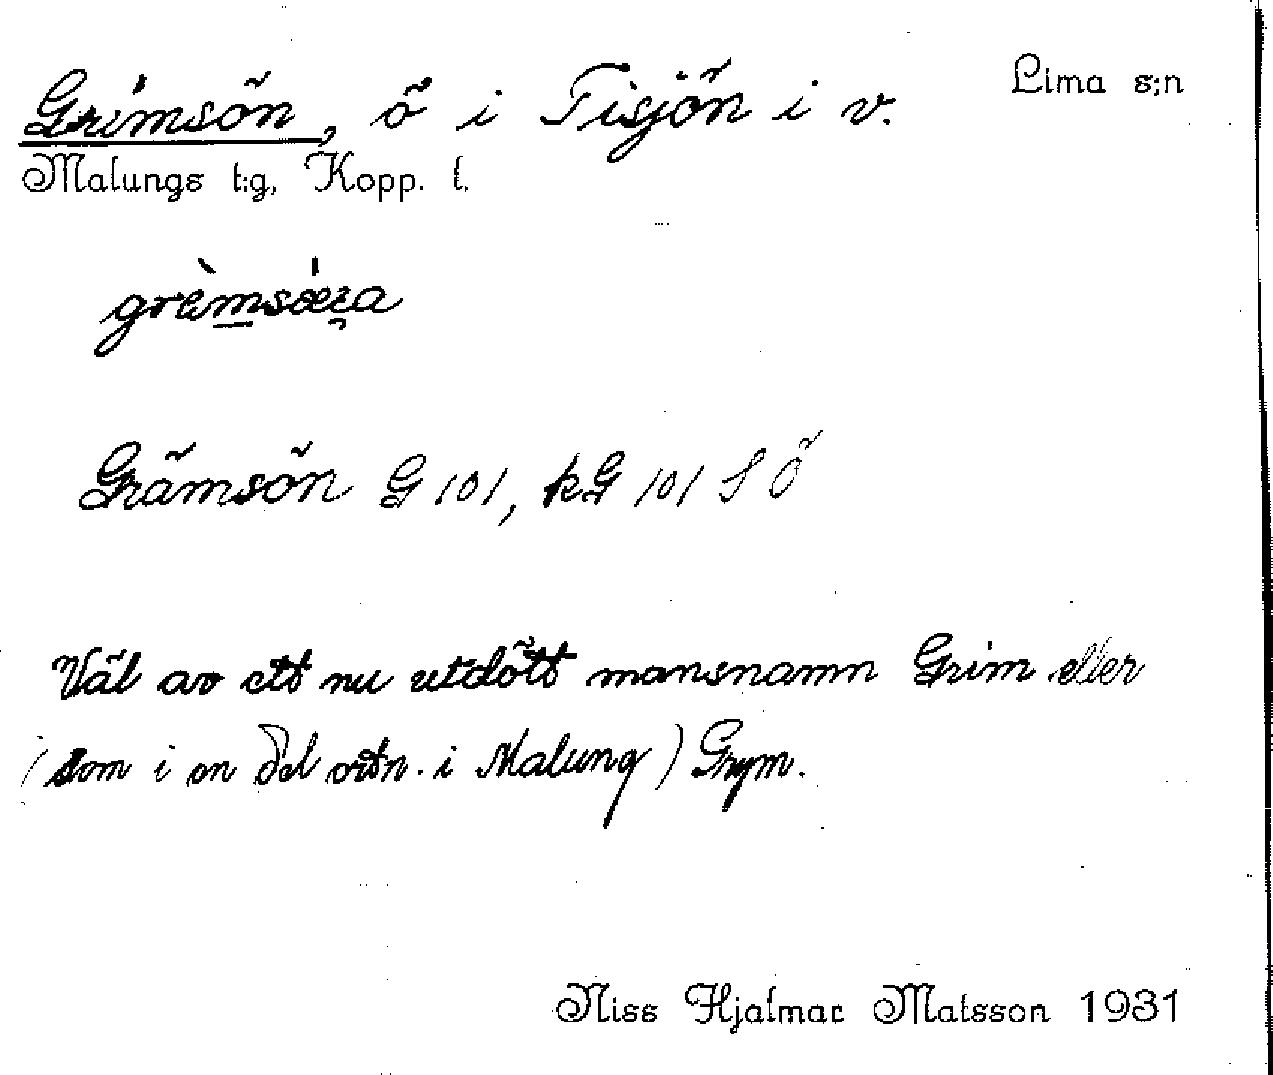 Grimsön, ö i Tisjön i v. Lima s:n
Malungs t:g, Kopp. l.
grèmsǿɛra
Grämsön G 101, kG 101 S Ö
Väl av ett nu utdött mansnamn Grim eller
(som i en del ortn. i Malung) Grym.
Niss Hjalmar Matsson 1931